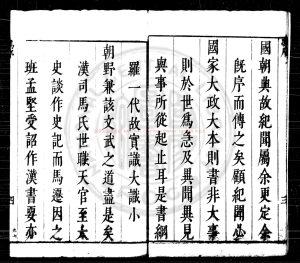 國朝典故紀聞屬余更定余
既序而傳之矣顧紀聞必
國家大政大本則書非大事
則於世爲急及異聞異見
與事所從起止耳是書網
羅一代故實識大識小
朝野兼該文武之道盡是矣
漢司馬氏世職天官至太
史談作史記而馬遷因之
班孟堅受詔作漢書要亦